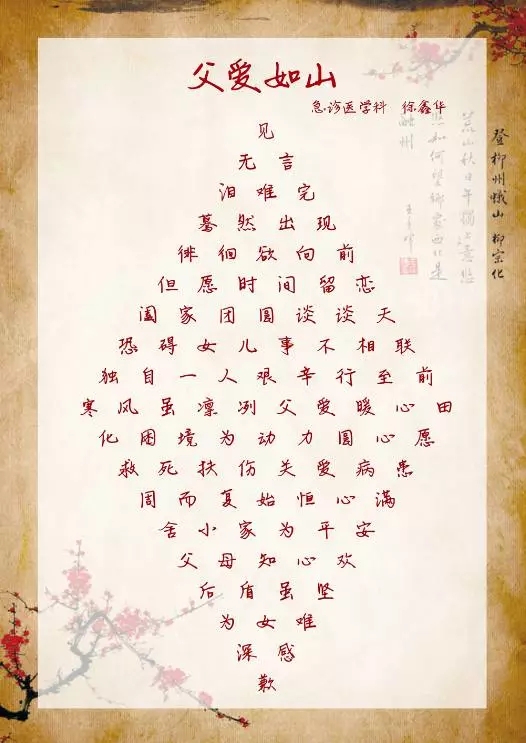 父爱如山
急诊医学科 徐鑫华
见
无言
泪难完
蓦然出现
徘徊欲向前
但愿时间留恋
阖家团圆谈谈天
恐碍女儿事不相联
独自一人艰辛行至前
寒风虽凛冽父爱暖心田
化困境为动力圆心愿
救死扶伤关爱病患
周而复始恒心满
舍小家为平安
父母知心欢
后盾虽坚
为女难
深感
歉
登柳州蛾山 柳宗化
荒山秋日午独上意悠
如何望乡家西北是
融州